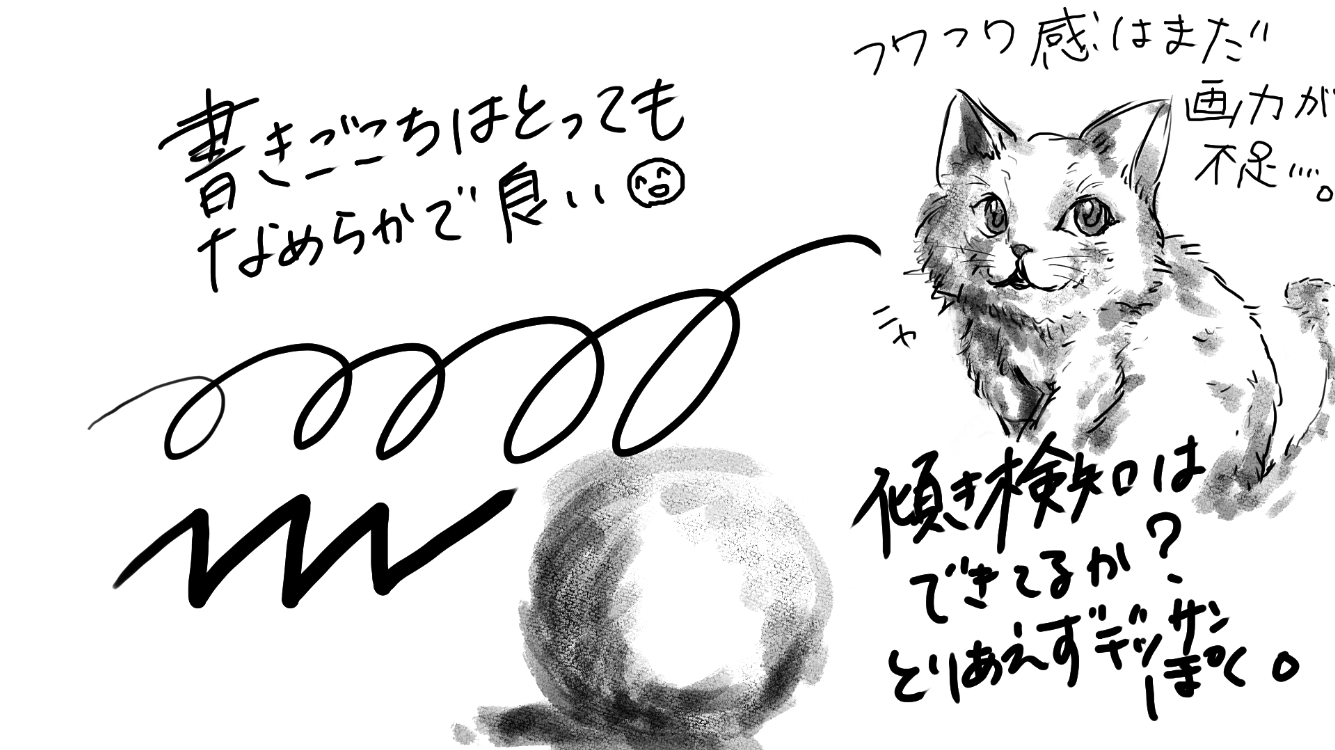 書きごこちはとっても
なめらかで良い
フワフワ感はまだ
画力が
不足…。
ニャ
傾き検知は
できてるか?
とりあえずデッサン
ぽく。